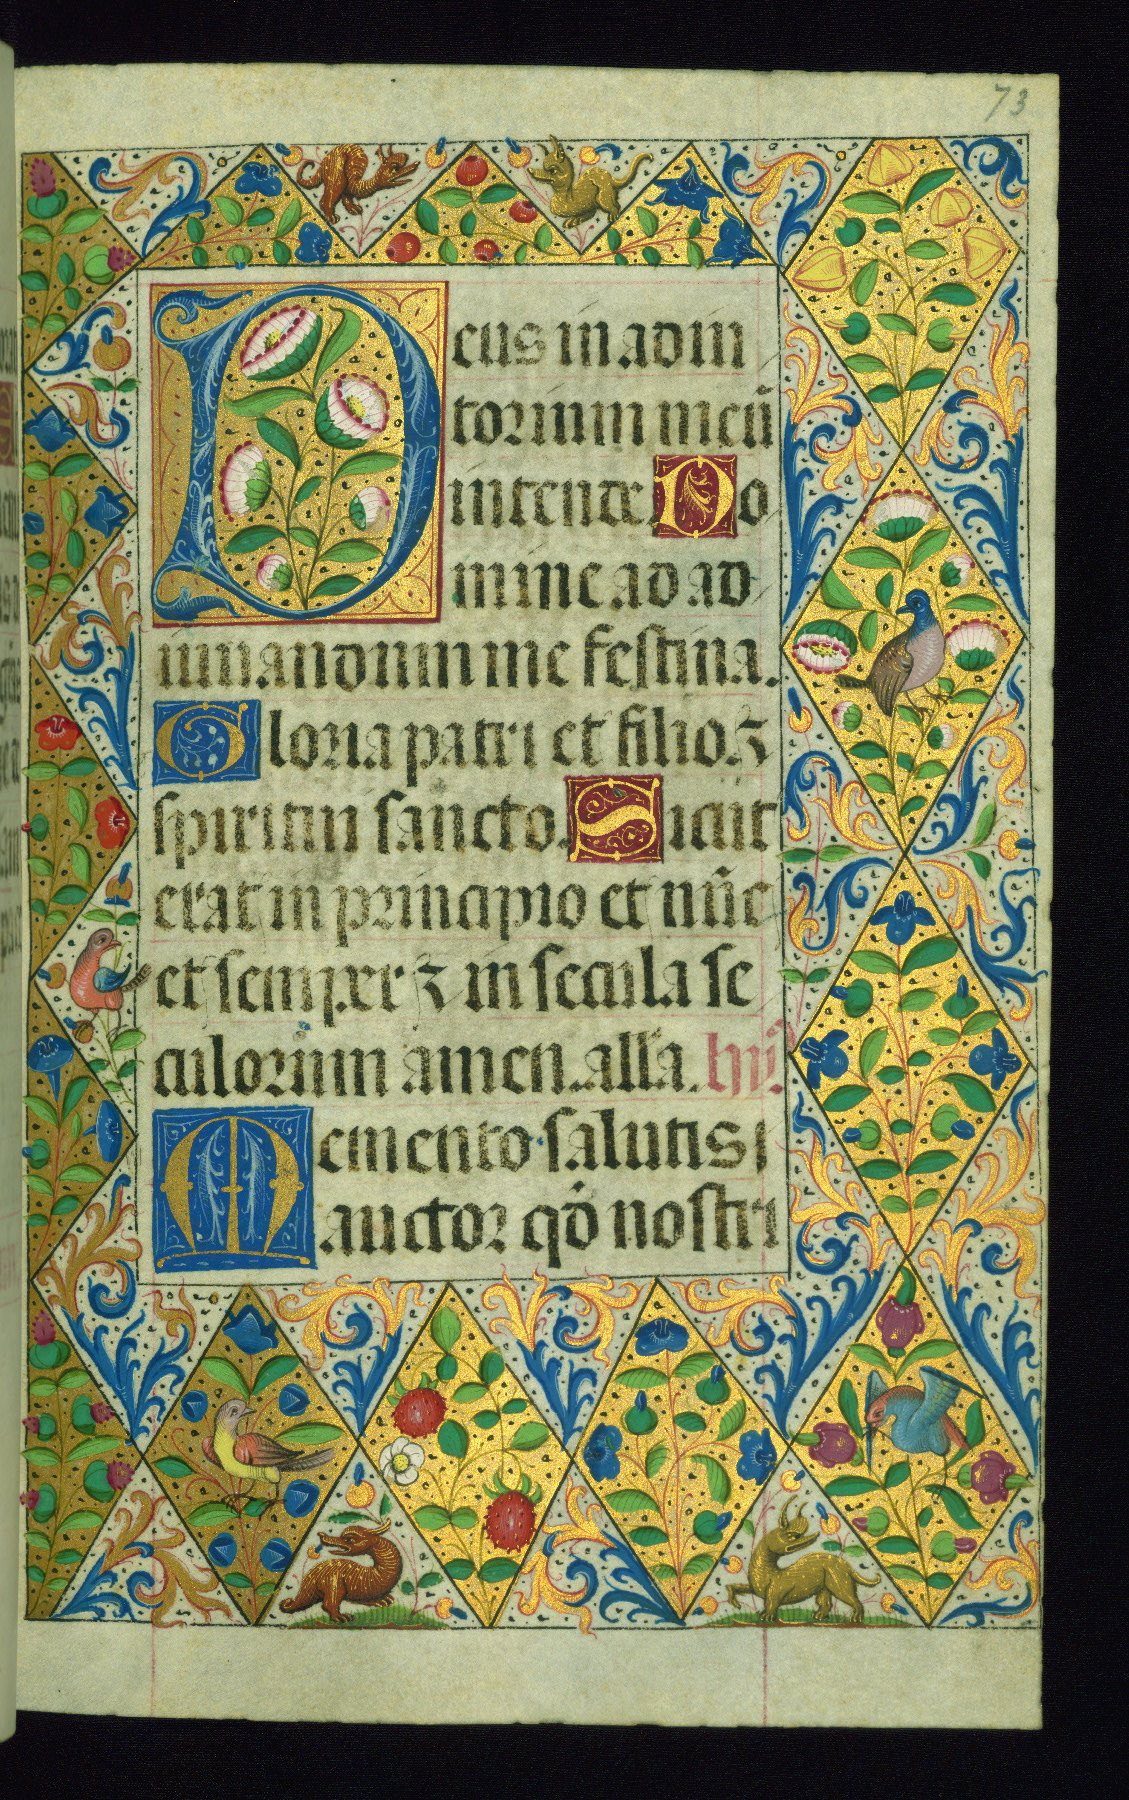 73
Deus in adiu
torium meū
intende. Do
mine ad ad
iuuandum me festina.
Gloria patri et filio ⁊
spiritui sancto. Sicut
erat in principio et nūc
et semper ⁊ in secula se
culorum amen. alla. hy̅.
Memento salutis
auctor qd̄ nostri